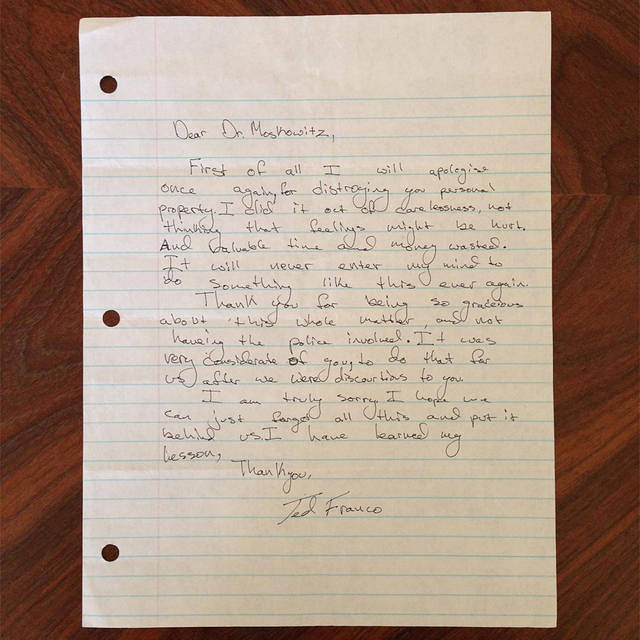 Dear Dr. Moskowitz,
First of all I will apologise
once again, for distroying you personal
property. I did it out of carelessness, not
thinking that feelings might be hurt.
And valuable time and money wasted.
It will never enter my mind to
do something like this ever again.
Thank you for being so gracious
about this whole matter, and not
having the police involved. It was
very considerate of you, to do that for
us, after we were discourtious to you.
I am truly sorry I hope we
can just forget all this and put it
behind us. I have learned my
lesson,
Thank you,
Ted Franco